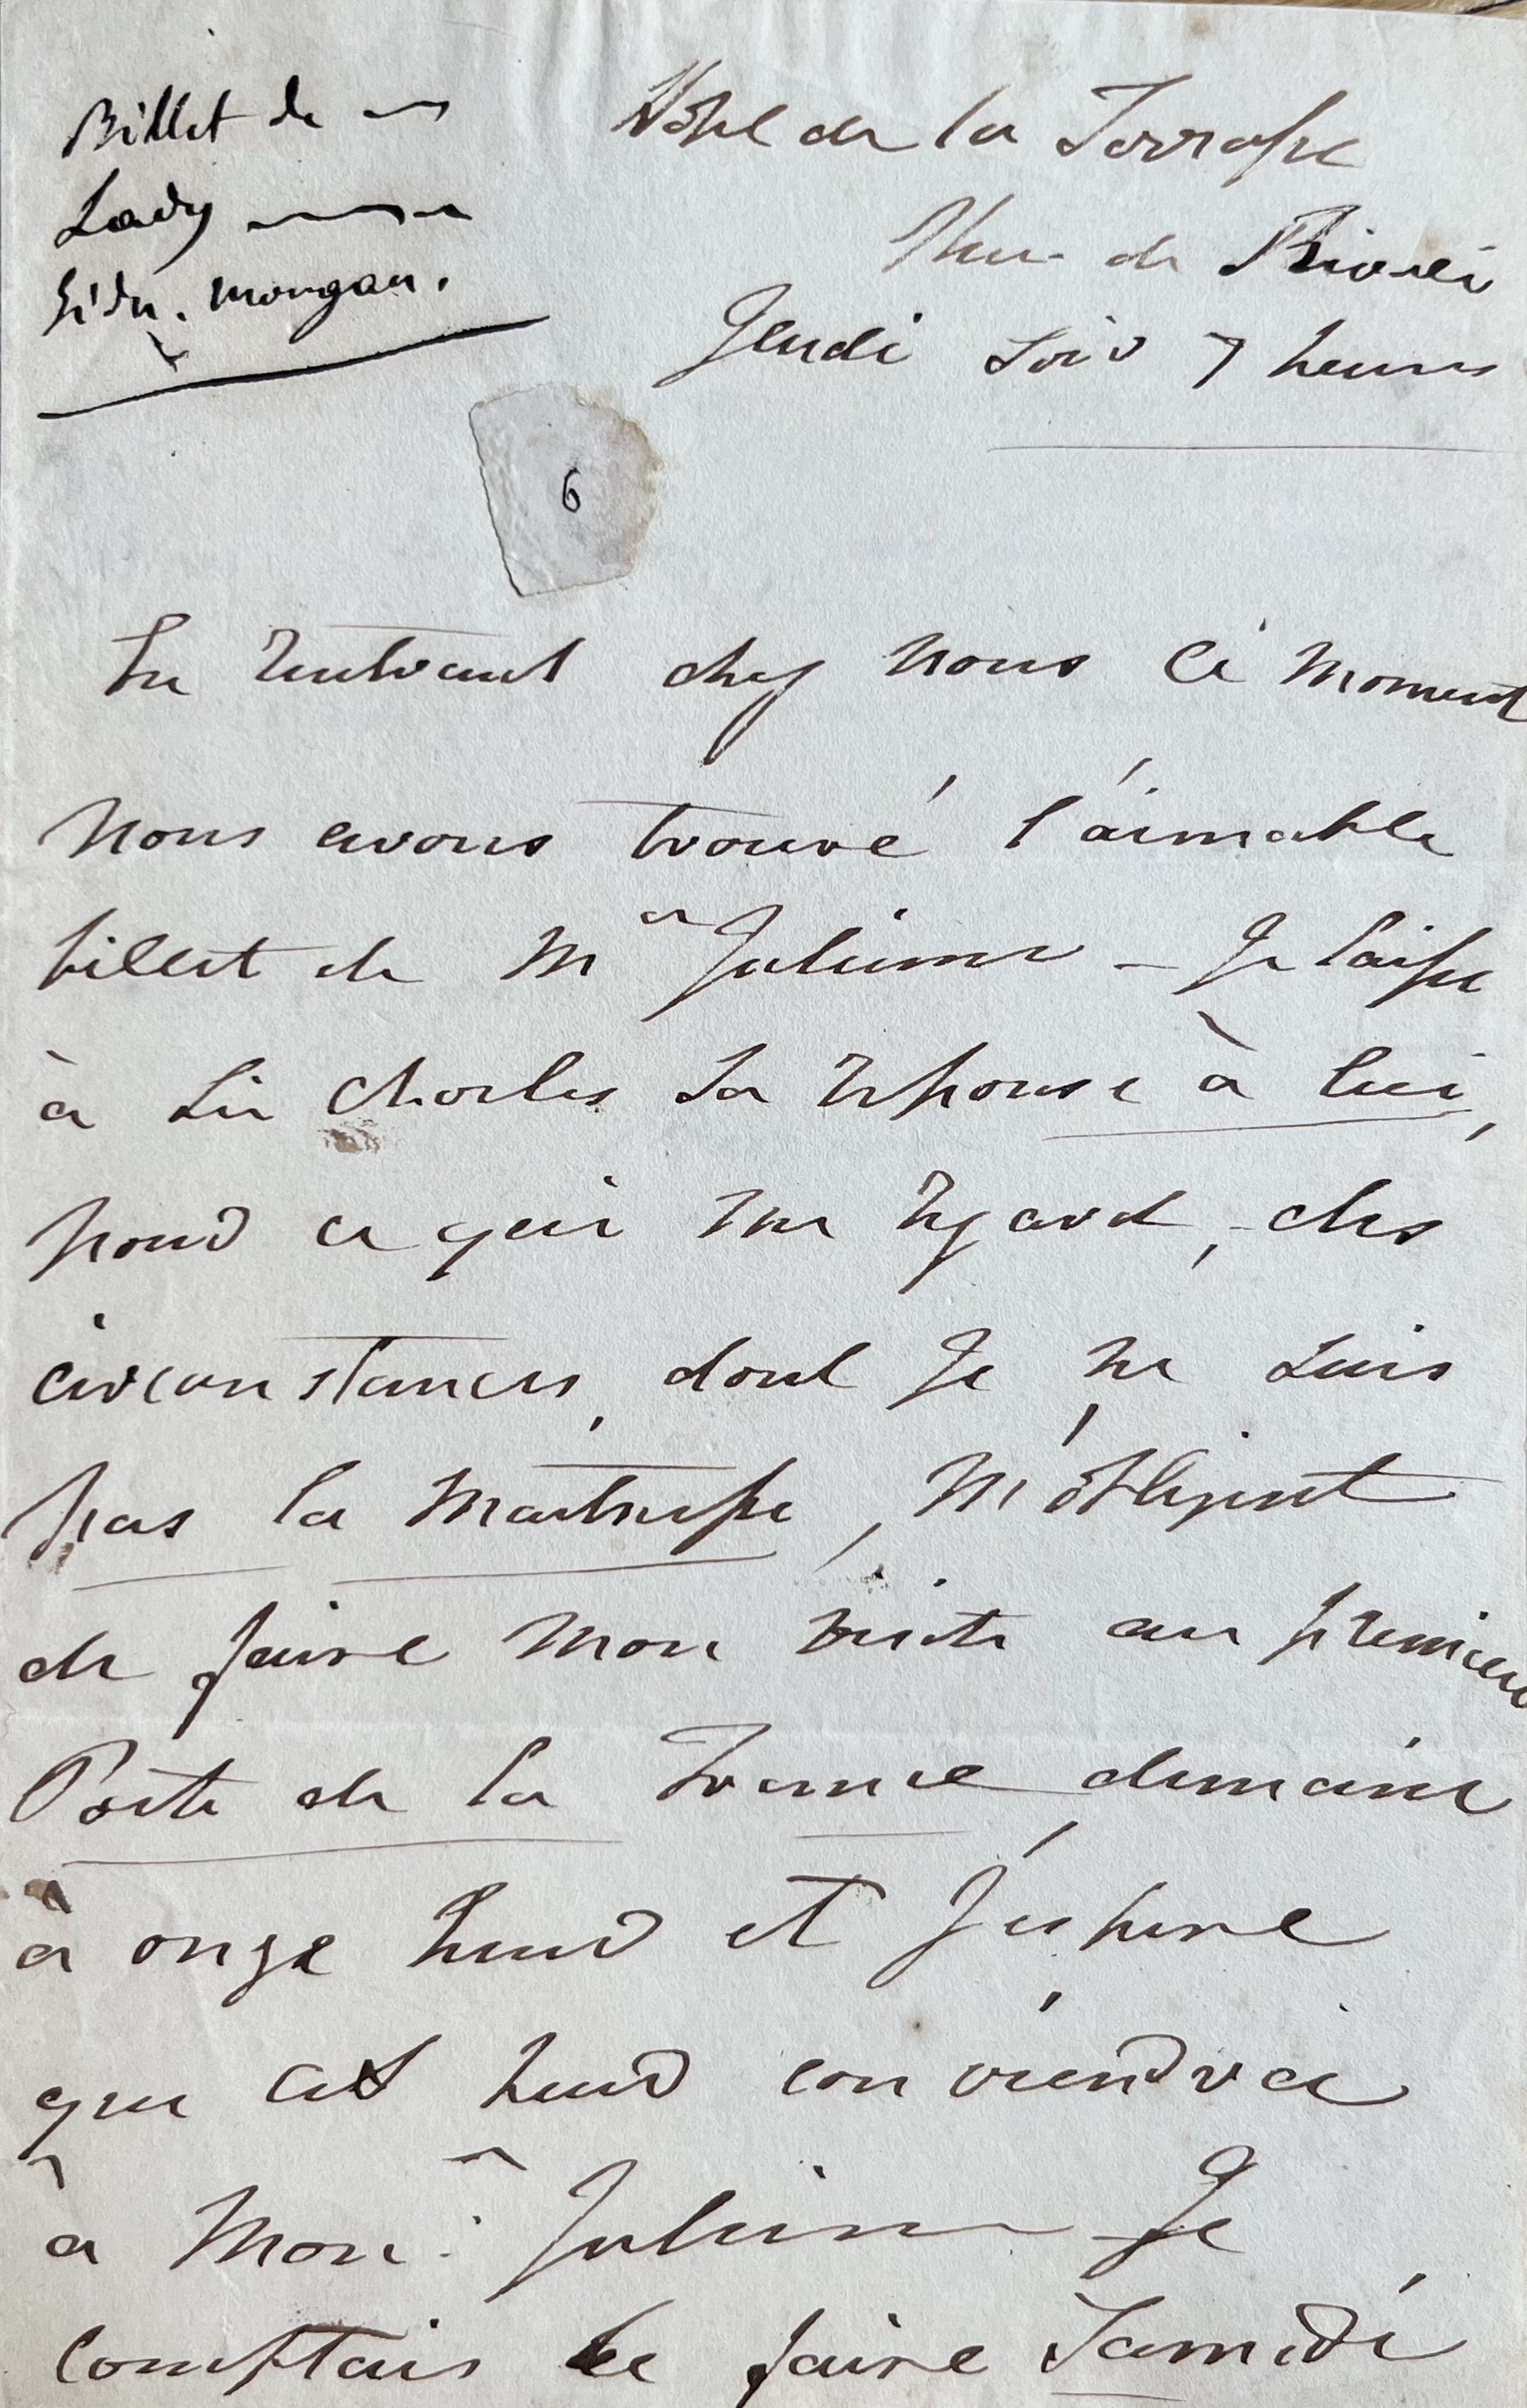 Billet de
Lady
Sidn. Morgan.
Hôtel de la Terrasse
Rue de Rivoli
Jeudi soir 7 heures
6
En rentrant chez nous ce moment
nous avons trouvé l'aimable
billet de Mr Jullienne – Je laisse
à Sir Charles sa reponse à lui,
pour ce qui me regard, – des
circonstances, dont Je ne suis
pas la maitresse, m'obligent
de faire mon visite au premier
Poete de la France, demain
à onze heur et J'espere
que cet heur conviendra
à Mon: Jullienne Je
comptais le faire Samedi